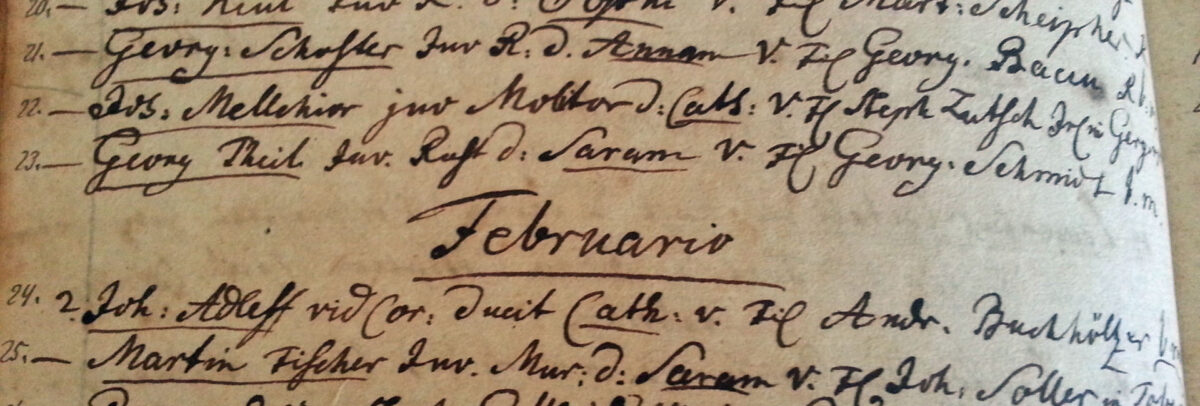 20. — Joh: juv R. d: Sophi V. Fil Mart: Scheipner
21. — Georg: Schuster Juv R: d. Annam V. Fil Georg. Bacun R b.
22. — Joh: Mellchior juv Molitor d: Cath: V. Fil Steph Zutsch
23. — Georg Theil Juv. Rust d: Saram V. Fil Georg: Schmidt b. m.
Februario
24. 2. Joh: Adleff vid Cor: ducit Cath: v. Fil Andr. Buchhölzer
25. — Martin Fischer Juv. Mur: d: Saram V. Fil Joh: Soller in